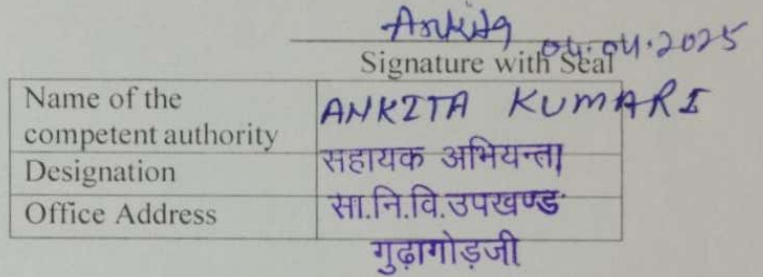 Ankita 04.04.2025
Signature with Seal
Name of the competent authority ANKITA KUMARI
Designation सहायक अभियन्ता
Office Address सा.नि.वि.उपखण्ड
गुढ़ागोड़जी